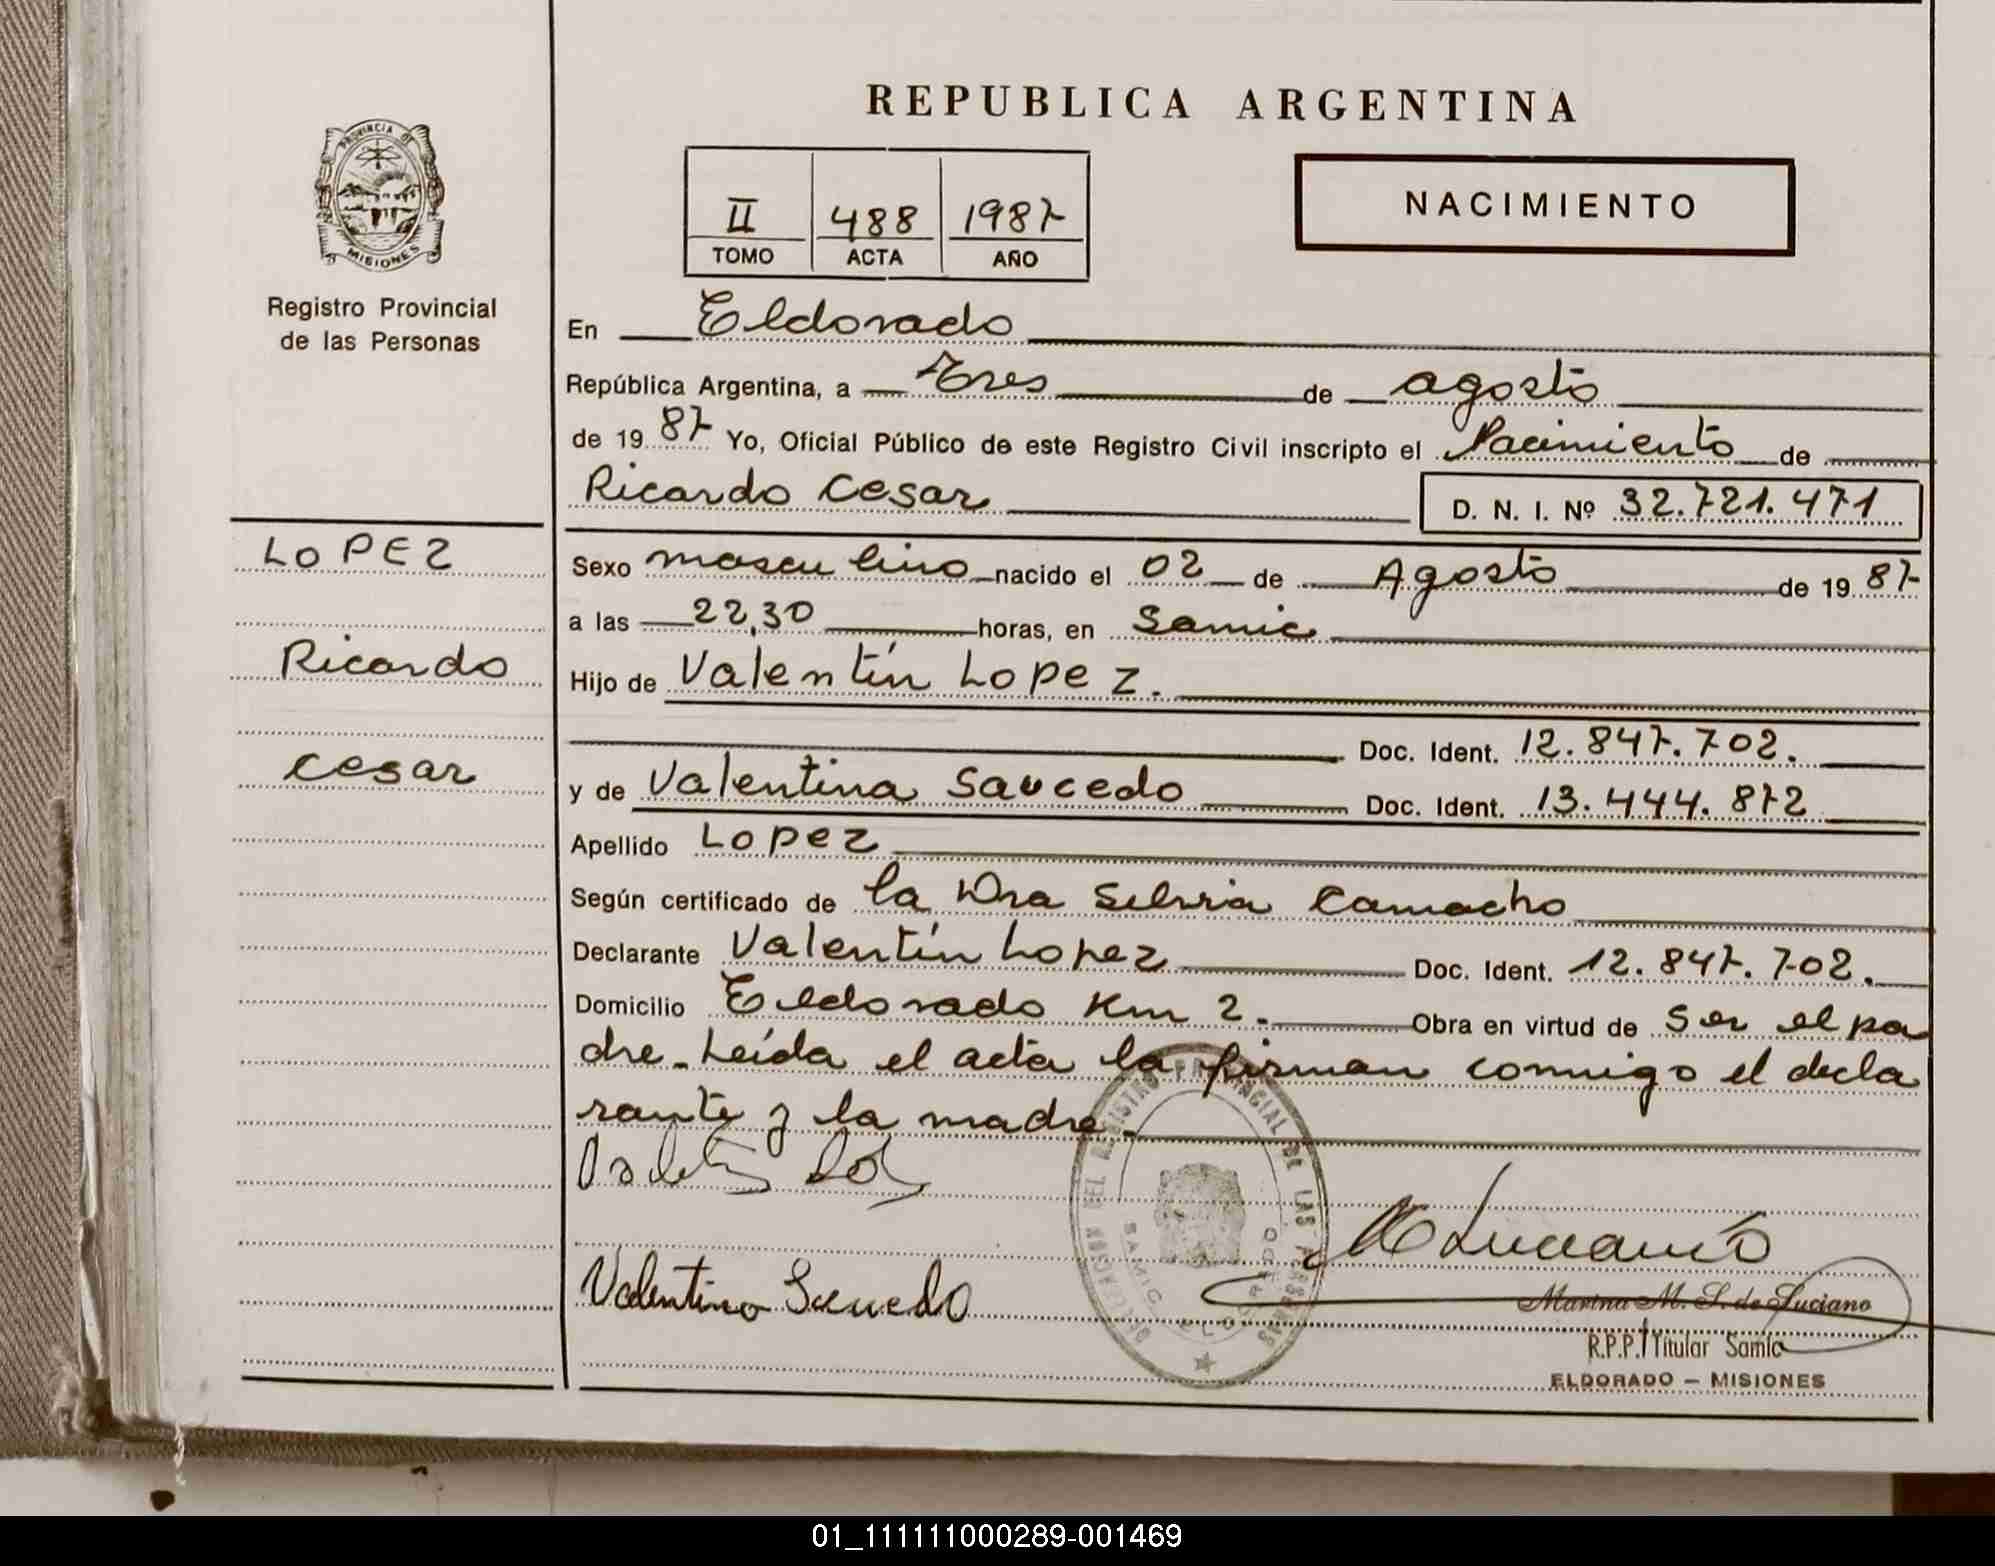 REPUBLICA ARGENTINA
PROVINCIA DE
MISIONES
Registro Provincial
de las Personas
II 488 1987
TOMO ACTA AÑO
NACIMIENTO
En Eldorado
República Argentina, a Tres de agosto
de 19 87 Yo, Oficial Público de este Registro Civil inscripto el Nacimiento de
Ricardo Cesar D. N. I. Nº 32.721.471
LOPEZ
Ricardo
Cesar
Sexo masculino nacido el 02 de Agosto de 19 87
a las 22,30 horas, en Samic
Hijo de Valentín Lopez.
Doc. Ident. 12.847.702.
y de Valentina Saucedo Doc. Ident. 13.444.872
Apellido Lopez
Según certificado de la Dra Silvia Camacho
Declarante Valentín Lopez Doc. Ident. 12.847.702.
Domicilio Eldorado Km 2. Obra en virtud de Ser el pa
dre. Leída el acta la firman conmigo el decla
rante y la madre.
Valentina Saucedo
DELEGACION DEL REGISTRO PROVINCIAL DE LAS PERSONAS
SAMIC ELDORADO
Marina M. S. de Luciano
R.P.P. Titular Samic
ELDORADO - MISIONES
01_111111000289-001469